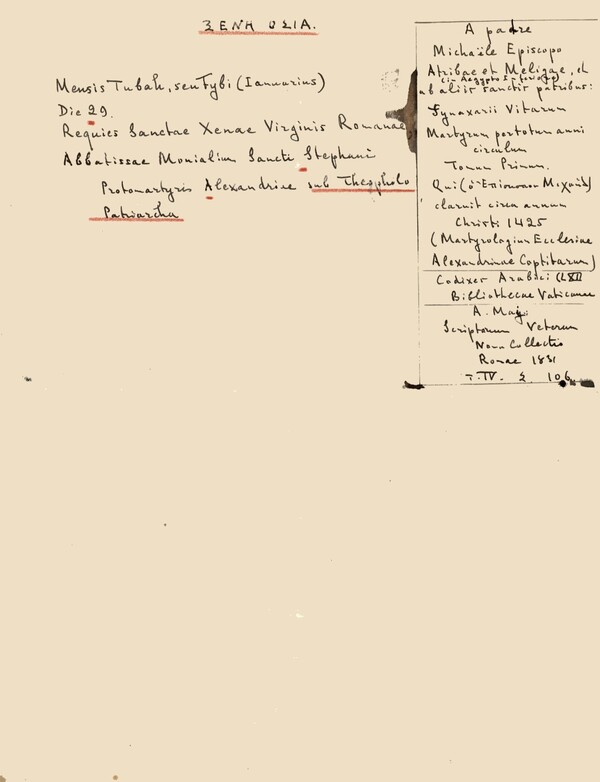 ΞΕΝΗ ΟΣΙΑ.
Mensis Tubah, seu Tybi (Iannuarius)
Die 29.
Requies Sanctae Xenae Virginis Romanae
Abbatissae Monialium Sancti Stephani
Protomartyris Alexandriae sub Theopholo
Patriarcha
A padre
Michaële Episcopo
Atribae et Meligae, et
(in Aegypto Inferiore)
ab aliis sanctis patribus:
Synaxarii Vitarum
Martyrum per totum anni
circulum
Tomum Primum.
Qui (ὁ Ἐπίσκοπος Μιχαὴλ)
claruit circa annum
Christi 1425
(Martyrologium Ecclesiae
Alexandrinae Coptitarum)
Codices Arabici (LXII
Bibliothecae Vaticanae
A. Maj.
Scriptorum Veterum
Nova Collectio
Romae 1831
T. IV. Σ. 106